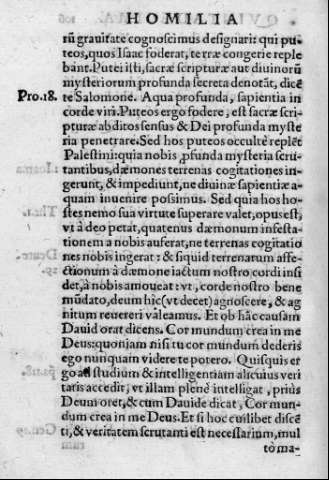 HOMILIA
rũ grauitate cognoscimus designari: qui pu-
teos, quos Isaac foderat, terræ congerie reple
bant. Putei isti, sacræ scripturæ aut diuinorũ
mysteriorum profunda secreta denotãt, dicẽ
Pro. 18. te Salomone. Aqua profunda, sapientia in
corde viri. Puteos ergo fodere, est sacræ scri-
pturæ abditos sensus & Dei profunda myste
ria penetrare. Sed hos puteos occultè replẽt
Palestini: quia nobis ꝓfunda mysteria scru-
tantibus, dæmones terrenas cogitationes in-
gerunt, & impediunt, ne diuinæ sapientiæ a-
quam inuenire possimus. Sed quia hos ho-
stes nemo sua virtute superare valet, opus est,
vt à deo petat, quatenus dæmonum infesta-
tionem a nobis auferat, ne terrenas cogitatio
nes nobis ingerat: & siquid terrenatum affe-
ctionum à dæmone iactum nostro cordi insi
det, à nobis amoueat: vt, corde nostro bene
mũdato, deum hic (vt decet) agnoscere, & ag
nitum reuereri valeamus. Et ob hãc causam
Dauid orat dicens. Cor mundum crea in me
Deus: quoniam nisi tu cor mundum dederis
ego nunquam videre te potero. Quisquis er
go ad studium & intelligentiam alicuius veri
taris accedit, vt illam plenè intelligat, prius
Deum oret, & cum Dauide dicat, Cor mun-
dum crea in me Deus. Et si hoc cuilibet discẽ
ti, & veritatem scrutanti est necessarium, mul
tò ma-